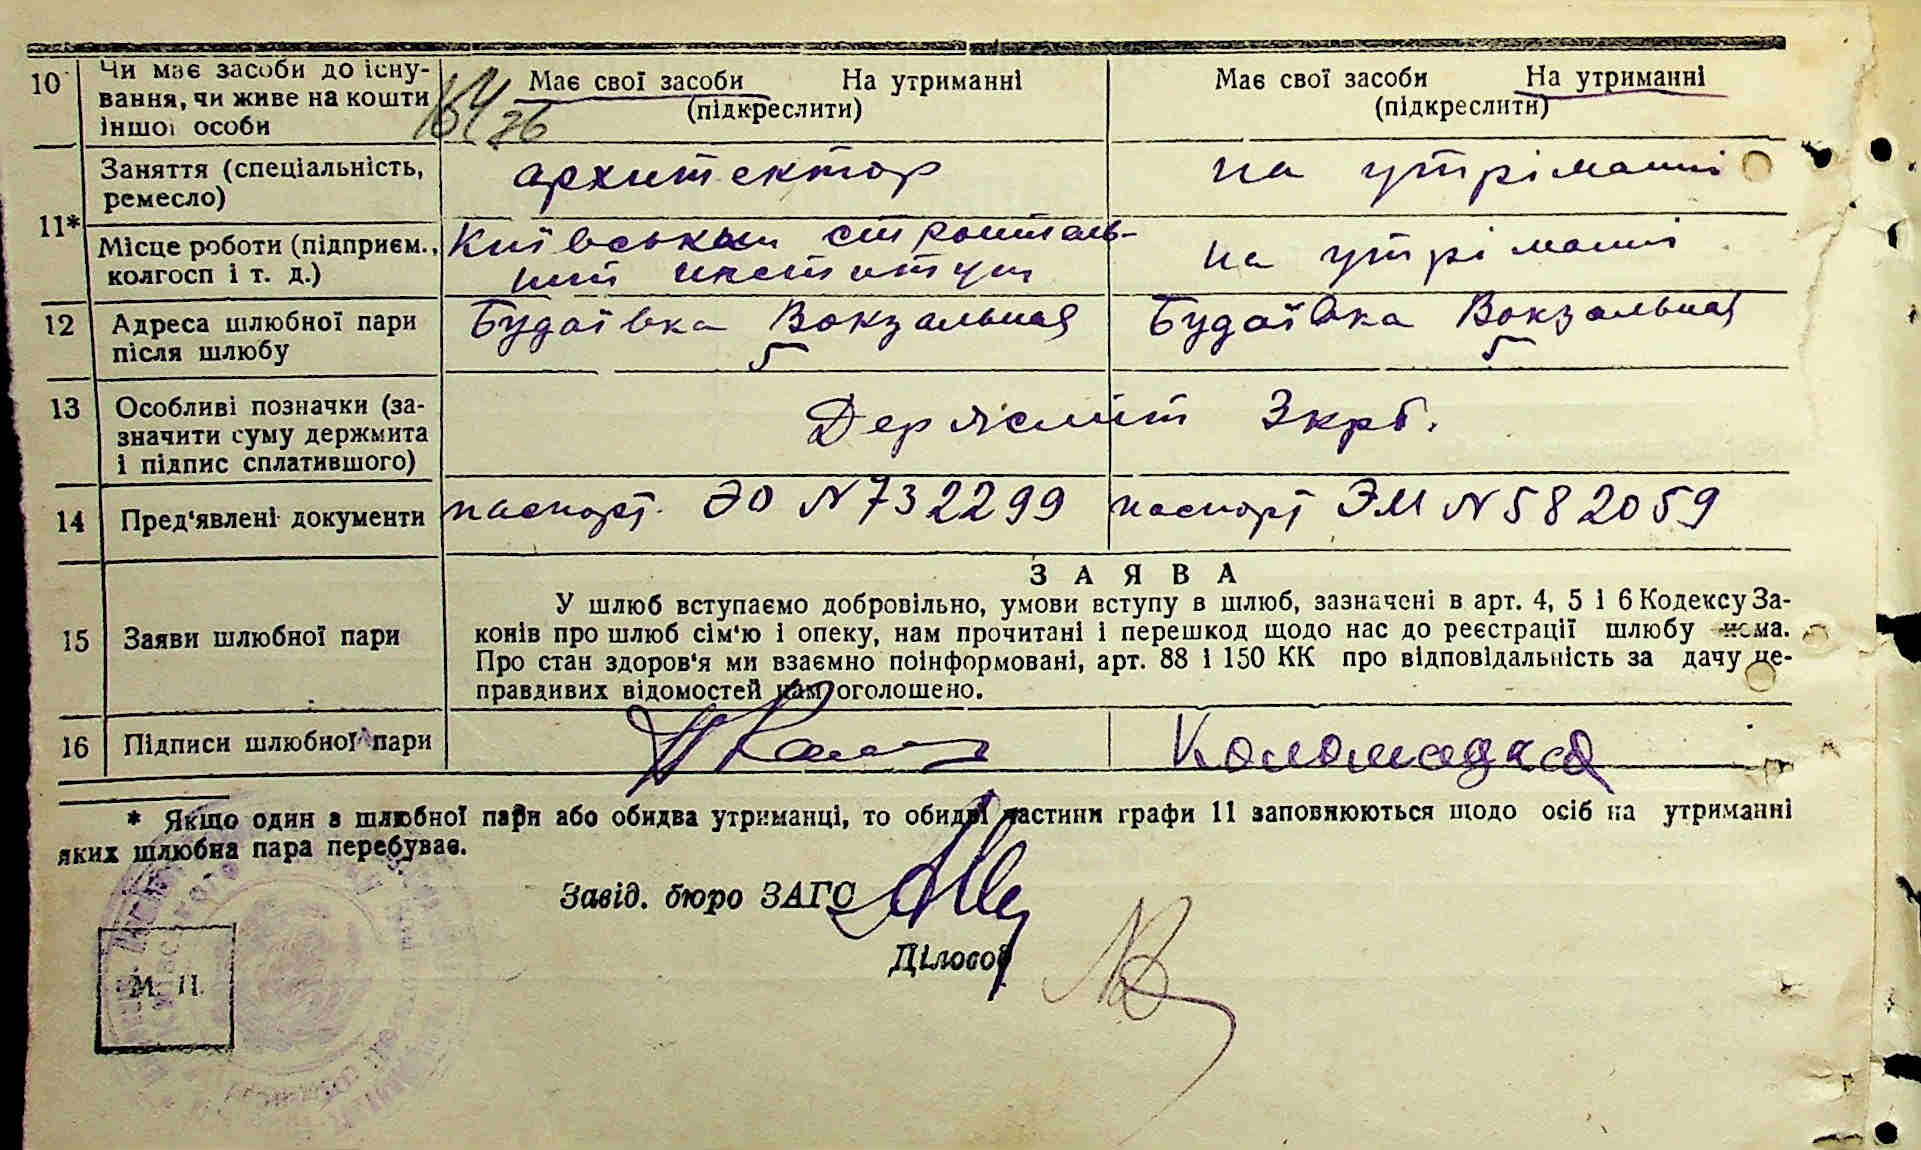 10 Чи має засоби до існу-
вання, чи живе на кошти
іншої особи
Має свої засоби На утриманні
(підкреслити)
Має свої засоби На утриманні
(підкреслити)
11* Заняття (спеціальність,
ремесло)
архитектор
на утріманні
Місце роботи (підприєм.,
колгосп і т. д.)
Київський строитель-
ний институт
на утріманні
12 Адреса шлюбної пари
після шлюбу
Будаївка Вокзальная
5
Будаївка Вокзальная
5
13 Особливі позначки (за-
значити суму держмита
і підпис сплатившого)
Держмит 3 крб.
14 Пред'явлені документи
паспорт ЭО N 732299
паспорт ЭМ N 582059
15 Заяви шлюбної пари
ЗАЯВА
У шлюб вступаємо добровільно, умови вступу в шлюб, зазначені в арт. 4, 5 і 6 Кодексу За-
конів про шлюб сім'ю і опеку, нам прочитані і перешкод щодо нас до реєстрації шлюбу нема.
Про стан здоров'я ми взаємно поінформовані, арт. 88 і 150 КК про відповідальність за дачу не-
правдивих відомостей нам оголошено.
16 Підписи шлюбної пари
* Якщо один з шлюбної пари або обидва утриманці, то обидві частини графи 11 заповнюються щодо осіб на утриманні
яких шлюбна пара перебуває.
Завід. бюро ЗАГС
Діловод
М. П.